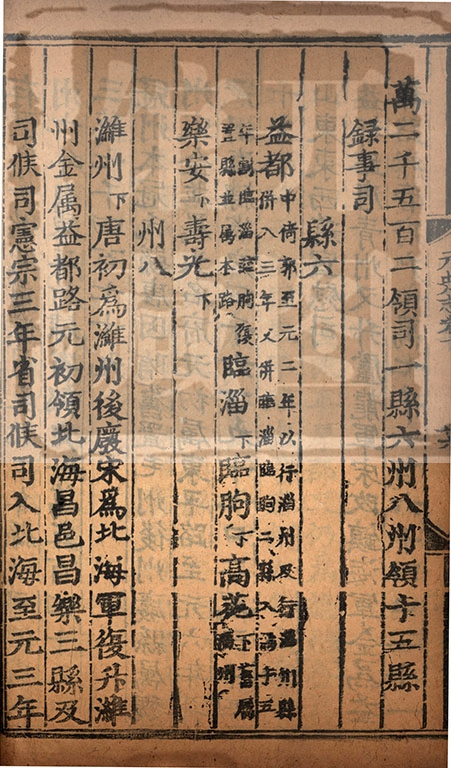 萬二千五百二領司一縣六州八州領十五縣
録事司
縣六
益都中倚郭至元二年以行淄州及行淄川縣
併入三年又併臨淄臨朐二縣入焉十五
年割臨淄臨朐復
置縣並属本路
臨淄下臨朐下高苑下舊屬
淄州
樂安下壽光下
州八
濰州下唐初為濰州後廢宋為北海軍復升濰
州金属益都路元初領北海昌邑昌樂三縣及
司候司憲宗三年省司候司入北海至元三年
元史志卷